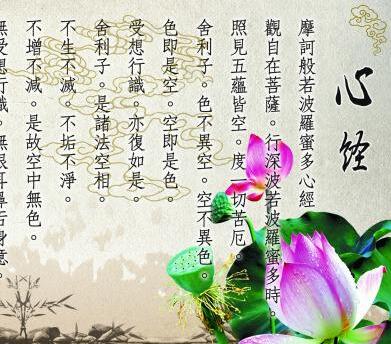 心经
摩訶般若波羅蜜多心經
觀自在菩薩。行深波若波羅蜜多時。
照見五蘊皆空。度一切苦厄。
舍利子。色不異空。空不異色。
色即是空。空即是色。
受想行識。亦復如是。
舍利子。是諸法空相。
不生不滅。不垢不淨。
不增不減。是故空中無色。
無受想行識。無眼耳鼻舌身意。